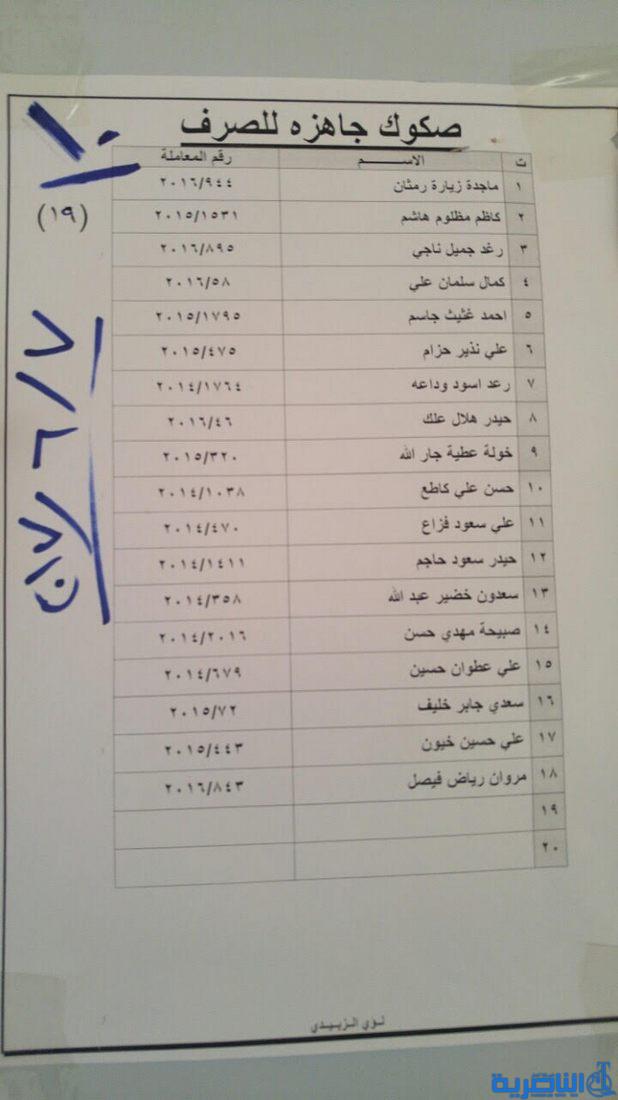 صكوك جاهزه للصرف
ت الاســـم رقم المعاملة
١ ماجدة زيارة رمثان ٢٠١٦/٩٤٤
٢ كاظم مظلوم هاشم ٢٠١٥/١٥٣١
٣ رغد جميل ناجي ٢٠١٦/٨٩٥
٤ كمال سلمان علي ٢٠١٦/٥٨
٥ احمد غثيث جاسم ٢٠١٥/١٧٩٥
٦ علي نذير حزام ٢٠١٥/٤٧٥
٧ رعد اسود وداعه ٢٠١٤/١٧٦٤
٨ حيدر هلال علك ٢٠١٦/٤٦
٩ خولة عطية جار الله ٢٠١٥/٣٢٠
١٠ حسن علي كاطع ٢٠١٤/١٠٣٨
١١ علي سعود فزاع ٢٠١٤/٤٧٠
١٢ حيدر سعود حاجم ٢٠١٤/١٤١١
١٣ سعدون خضير عبد الله ٢٠١٤/٣٥٨
١٤ صبيحة مهدي حسن ٢٠١٤/٢٠١٦
١٥ علي عطوان حسين ٢٠١٤/٦٧٩
١٦ سعدي جابر خليف ٢٠١٥/٧٢
١٧ علي حسين خيون ٢٠١٥/٤٤٣
١٨ مروان رياض فيصل ٢٠١٦/٨٤٣
١٩
٢٠
(١٩)
لـؤي الـزبـيـدي
الناصرية